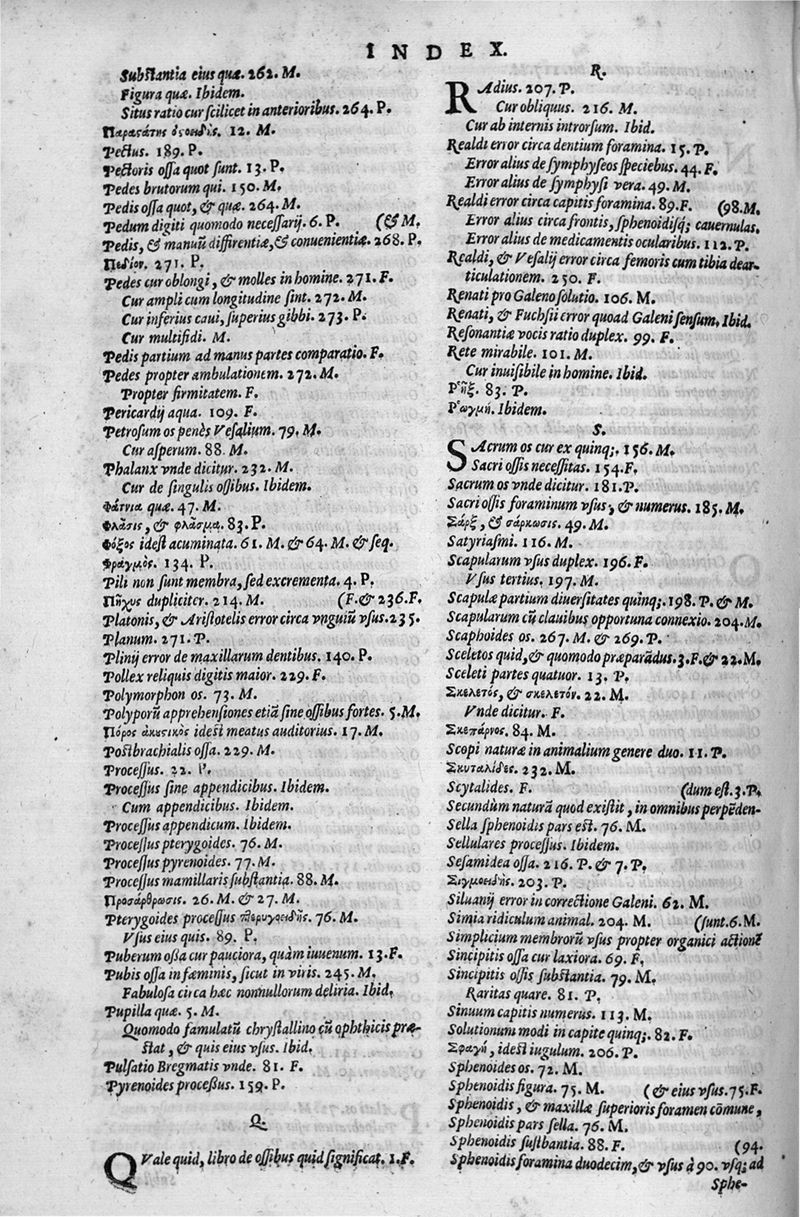 INDEX.
Substantia eius quæ. 262. M.
Figura quæ. Ibidem.
Situs ratio cur scilicet in anterioribus. 264. P.
Παραςάτης ὀςοειδὴς. 12. M.
Pectus. 189. P.
Pectoris ossa quot sunt. 13. P.
Pedes brutorum qui. 150. M.
Pedis ossa quot, & quæ. 264. M.
Pedum digiti quomodo necessarij. 6. P. (& M.
Pedis, & manuū differentiæ, & conuenientiæ. 268. P.
Πεδίον. 271. P.
Pedes cur oblongi, & molles in homine. 271. F.
Cur ampli cum longitudine sint. 272. M.
Cur inferius caui, superius gibbi. 273. P.
Cur multifidi. M.
Pedis partium ad manus partes comparatio. F.
Pedes propter ambulationem. 272. M.
Propter firmitatem. F.
Pericardij aqua. 109. F.
Petrosum os penès Vesalium. 79. M.
Cur asperum. 88. M.
Phalanx vnde dicitur. 232. M.
Cur de singulis ossibus. Ibidem.
Φάτνια quæ. 47. M.
Φλάσις, & φλάσμα. 83. P.
Φόξος idest acuminata. 61. M. & 64. M. & seq.
Φραγμὸς. 134. P.
Pili non sunt membra, sed excrementa. 4. P.
Πῆχυς dupliciter. 214. M. (F. & 236. F.
Platonis, & Aristotelis error circa vnguiū vsus. 235.
Planum. 271. P.
Plinij error de maxillarum dentibus. 140. P.
Pollex reliquis digitis maior. 229. F.
Polymorphon os. 73. M.
Polyporū apprehensiones etiā sine ossibus fortes. 5. M.
Πόρος ἀκυςικὸς idest meatus auditorius. 17. M.
Postbrachialis ossa. 229. M.
Processus. 22. P.
Processus sine appendicibus. Ibidem.
Cum appendicibus. Ibidem.
Processus appendicum. Ibidem.
Processus pterygoides. 76. M.
Processus pyrenoides. 77. M.
Processus mamillaris substantia. 88. M.
Προσάρθρωσις. 26. M. & 27. M.
Pterygoides processus πτερυγοειδὴς. 76. M.
Vsus eius quis. 89. P.
Puberum ossa cur pauciora, quàm iuuenum. 13. F.
Pubis ossa in fæminis, sicut in viris. 245. M.
Fabulosa circa hæc nonnullorum deliria. Ibid.
Pupilla quæ. 5. M.
Quomodo famulatū chrystallino cū ophthicis præ-
stat, & quis eius vsus. Ibid.
Pulsatio Bregmatis vnde. 81. F.
Pyrenoides processus. 159. P.
Q.
QVale quid, libro de ossibus quid significat. 1. F.
R.
RAdius. 207. P.
Cur obliquus. 216. M.
Cur ab internis introrsum. Ibid.
Realdi error circa dentium foramina. 15. P.
Error alius de symphyseos speciebus. 44. F.
Error alius de symphysi vera. 49. M.
Realdi error circa capitis foramina. 89. F. (98. M.
Error alius circa frontis, sphenoidisq; cauernulas.
Error alius de medicamentis ocularibus. 112. P.
Realdi, & Vesalij error circa femoris cum tibia dear-
ticulationem. 250. F.
Renati pro Galeno solutio. 106. M.
Renati, & Fuchsii error quoad Galeni sensum. Ibid.
Resonantiæ vocis ratio duplex. 99. F.
Rete mirabile. 101. M.
Cur inuisibile in homine. Ibid.
Ρ῾ῆξ. 83. P.
Ρ῾ωγμή. Ibidem.
S.
SAcrum os cur ex quinq;. 156. M.
Sacri ossis necessitas. 154. F.
Sacrum os vnde dicitur. 181. P.
Sacri ossis foraminum vsus, & numerus. 185. M.
Σάρξ, & σάρκωσις. 49. M.
Satyriasmi. 116. M.
Scapularum vsus duplex. 196. F.
Vsus tertius. 197. M.
Scapulæ partium diuersitates quinq;. 198. P. & M.
Scapularum cū clauibus opportuna connexio. 204. M.
Scaphoides os. 267. M. & 269. P.
Sceletos quid, & quomodo præparādus. 3. F. & 22. M.
Sceleti partes quatuor. 13. P.
Σκελετός, & σκελετόν. 22. M.
Vnde dicitur. F.
Σκεπάρνος. 84. M.
Scopi naturæ in animalium genere duo. 11. P.
Σκυταλίδες. 232. M.
Scytalides. F. (dum est. 3. P.
Secundum naturā quod existit, in omnibus perpēden-
Sella sphenoidis pars est. 76. M.
Sellulares processus. Ibidem.
Sesamidea ossa. 216. P. & 7. P.
Σιγμοειδὴς. 203. P.
Siluanij error in correctione Galeni. 62. M.
Simia ridiculum animal. 204. M. (sunt. 6. M.
Simplicium membrorū vsus propter organici actionē
Sincipitis ossa cur laxiora. 69. F.
Sincipitis ossis substantia. 79. M.
Raritas quare. 81. P.
Sinuum capitis numerus. 113. M.
Solutionum modi in capite quinq;. 82. F.
Σφαγή, idest iugulum. 206. P.
Sphenoides os. 72. M.
Sphenoidis figura. 75. M. (& eius vsus. 75. F.
Sphenoidis, & maxillæ superioris foramen cōmune,
Sphenoidis pars sella. 76. M.
Sphenoidis sustbantia. 88. F. (94.
Sphenoidis foramina duodecim, & vsus à 90. vsq; ad
Sphe-